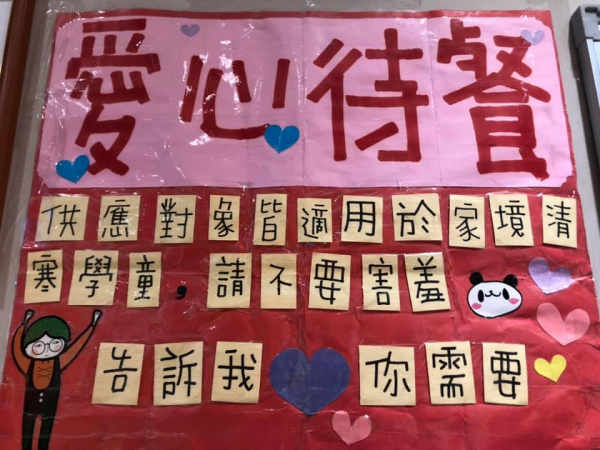 愛心待餐
供應對象皆適用於家境清
寒學童,請不要害羞
告訴我你需要